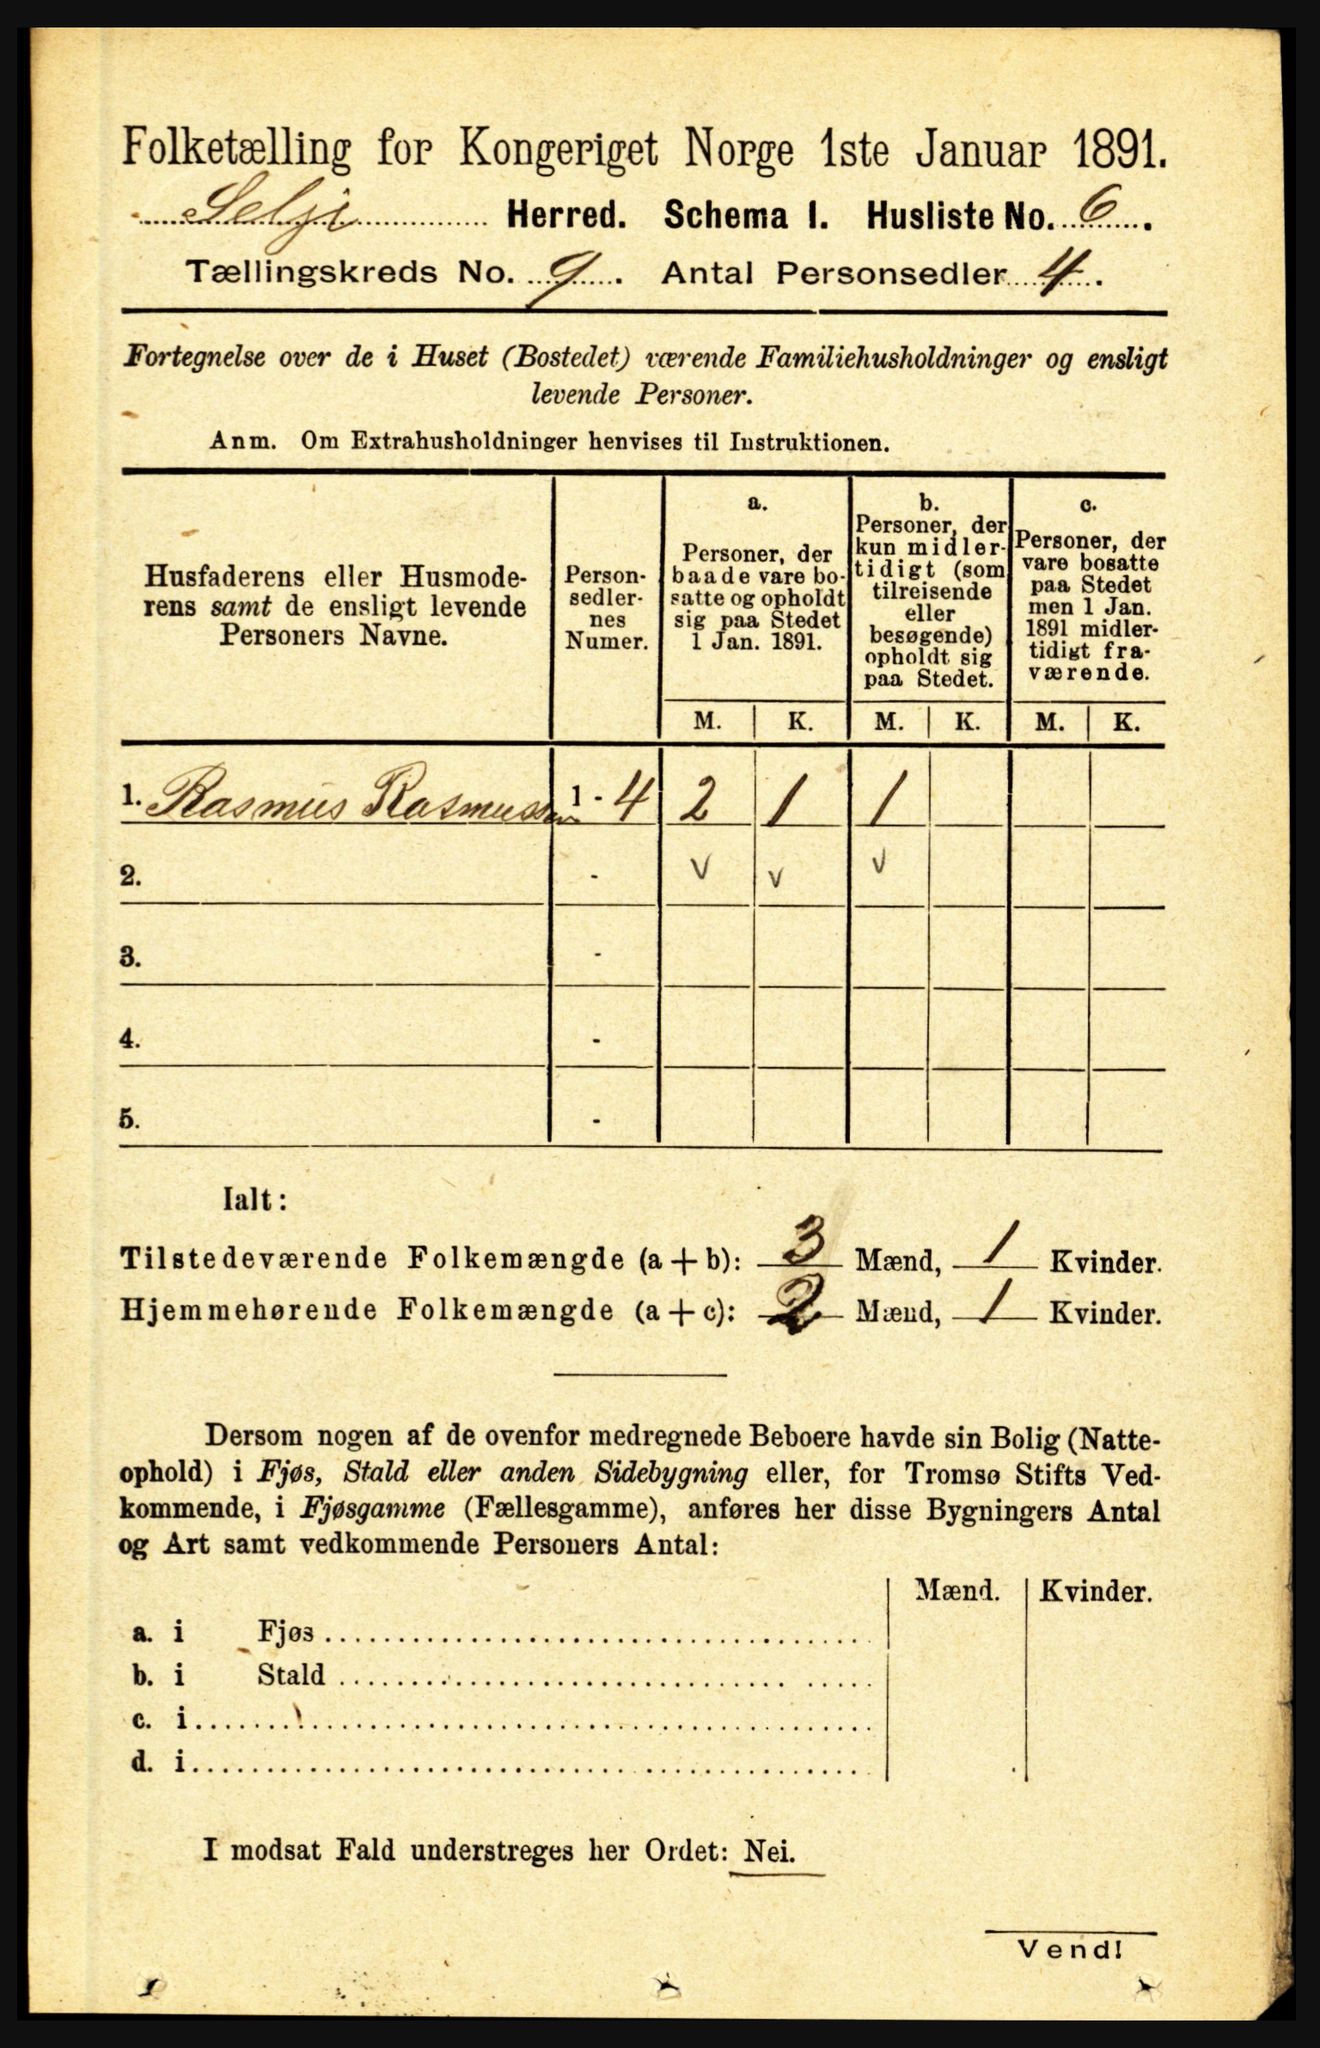 Folketælling for Kongeriget Norge 1ste Januar 1891.
Selje Herred. Schema I. Husliste No. 6.
Tællingskreds No. 9. Antal Personsedler 4.
Fortegnelse over de i Huset (Bostedet) værende Familiehusholdninger og ensligt
levende Personer.
Anm. Om Extrahusholdninger henvises til Instruktionen.
Husfaderens eller Husmode-
rens samt de ensligt levende
Personers Navne.
Person-
sedler-
nes
Numer.
a.
Personer, der
baade vare bo-
satte og opholdt
sig paa Stedet
1 Jan. 1891.
b.
Personer, der
kun midler-
tidigt (som
tilreisende
eller
besøgende)
opholdt sig
paa Stedet.
c.
Personer, der
vare bosatte
paa Stedet
men 1 Jan.
1891 midler-
tidigt fra-
værende.
M. K. M. K. M. K.
1. Rasmus Rasmussen 1 - 4 2 1 1
2. - v v v
3. -
4. -
5. -
Ialt:
Tilstedeværende Folkemængde (a + b): 3 Mænd, 1 Kvinder.
Hjemmehørende Folkemængde (a + c): 2 Mænd, 1 Kvinder.
Dersom nogen af de ovenfor medregnede Beboere havde sin Bolig (Natte-
ophold) i Fjøs, Stald eller anden Sidebygning eller, for Tromsø Stifts Ved-
kommende, i Fjøsgamme (Fællesgamme), anføres her disse Bygningers Antal
og Art samt vedkommende Personers Antal:
Mænd. Kvinder.
a. i Fjøs
b. i Stald
c. i
d. i
I modsat Fald understreges her Ordet: Nei.
Vend!